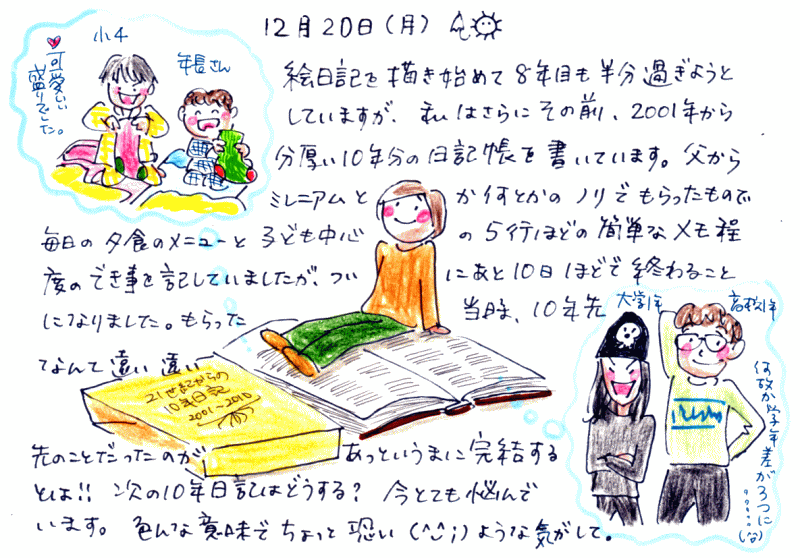 12月20日(月)
小4
♥可愛いい
盛りでした。
年長さん
絵日記を描き始めて8年目も半分過ぎようと
していますが、私はさらにその前、2001年から
分厚い10年分の日記帳を書いています。父から
ミレニアムと か何とかのノリでもらったもので
毎日の夕食のメニューと子ども中心 の5行ほどの簡単なメモ程
度のでき事を記していましたが、つい にあと10日ほどで終わること
になりました。もらった 当時、10年先
なんて遠い遠い
21世紀からの
10年日記
2001~2010
大学1年
高校1年
何故か学年
差が3つに
・・・・・(^^;)
先のことだったのが あっというまに完結する
とは!! 次の10年日記はどうする? 今とても悩んで
います。 色んな意味でちょっと恐い(^^;)ような気がして。